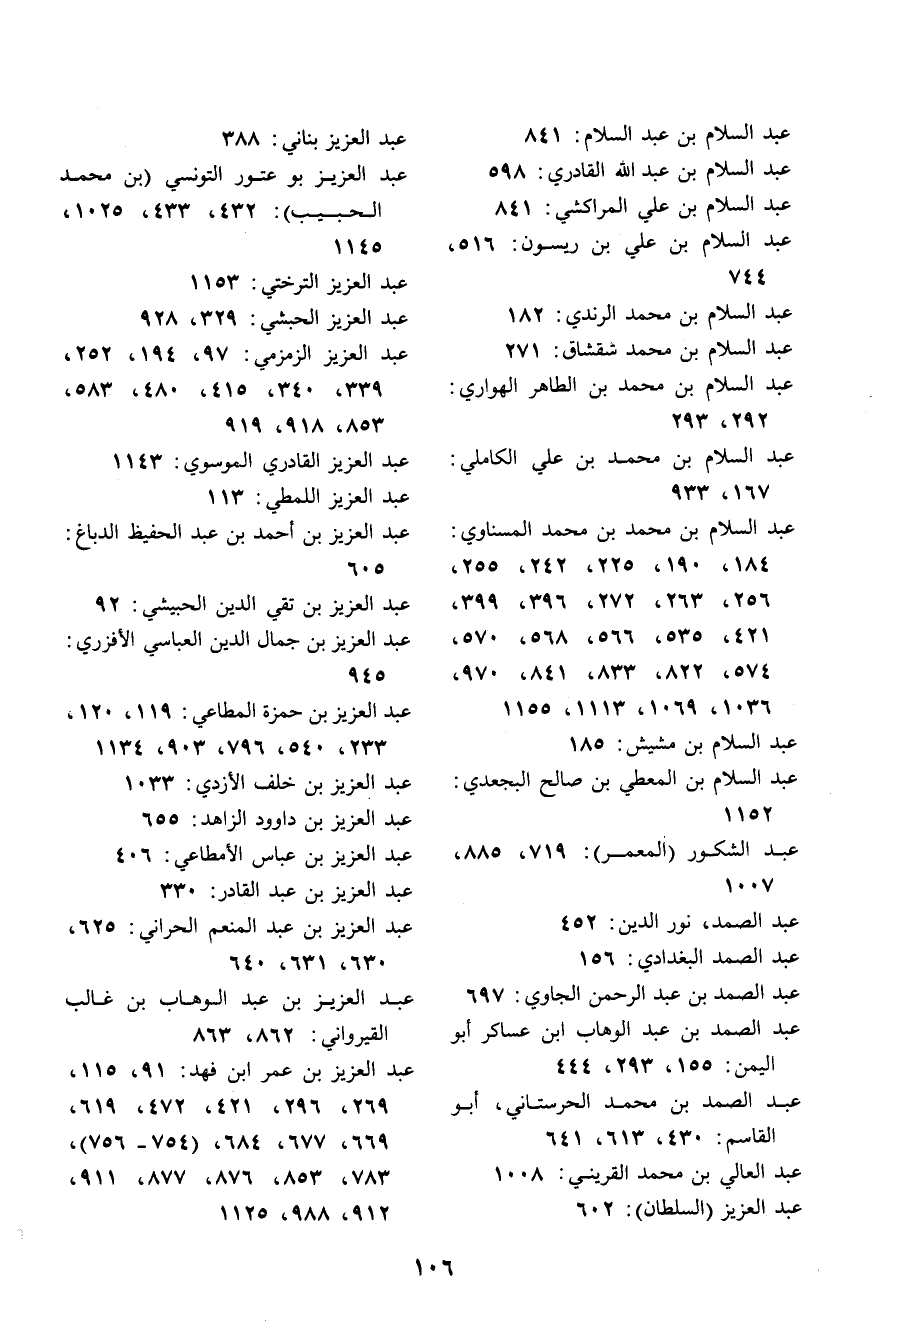 عبد السلام بن عبد السلام: ٨٤١
عبد السلام بن عبد الله القادري: ٥٩٨
عبد السلام بن علي المراكشي: ٨٤١
عبد السلام بن علي بن ريسون: ٥١٦،
٧٤٤
عبد السلام بن محمد الرندي: ١٨٢
عبد السلام بن محمد شقشاق: ٢٧١
عبد السلام بن محمد بن الطاهر الهواري:
٢٩٢، ٢٩٣
عبد السلام بن محمد بن علي الكاملي:
١٦٧، ٩٣٣
عبد السلام بن محمد بن محمد المسناوي:
١٨٤، ١٩٠، ٢٢٥، ٢٤٢، ٢٥٥،
٢٥٦، ٢٦٣، ٢٧٢، ٣٩٦، ٣٩٩،
٤٢١، ٥٣٥، ٥٦٦، ٥٦٨، ٥٧٠،
٥٧٤، ٨٢٢، ٨٣٣، ٨٤١، ٩٧٠،
١٠٣٦، ١٠٦٩، ١١١٣، ١١٥٥
عبد السلام بن مشيش: ١٨٥
عبد السلام بن المعطي بن صالح البجعدي:
١١٥٢
عبد الشكور (المعمر): ٧١٩، ٨٨٥،
١٠٠٧
عبد الصمد، نور الدين: ٤٥٢
عبد الصمد البغدادي: ١٥٦
عبد الصمد بن عبد الرحمن الجاوي: ٦٩٧
عبد الصمد بن عبد الوهاب ابن عساكر أبو
اليمن: ١٥٥، ٢٩٣، ٤٤٤
عبد الصمد بن محمد الحرستاني، أبو
القاسم: ٤٣٠، ٦١٣، ٦٤١
عبد العالي بن محمد القريني: ١٠٠٨
عبد العزيز (السلطان): ٦٠٢
عبد العزيز بناني: ٣٨٨
عبد العزيز بو عتور التونسي (بن محمد
الحبيب): ٤٣٢، ٤٣٣، ١٠٢٥،
١١٤٥
عبد العزيز الترختي: ١١٥٣
عبد العزيز الحبشي: ٣٢٩، ٩٢٨
عبد العزيز الزمزمي: ٩٧، ١٩٤، ٢٥٢،
٣٣٩، ٣٤٠، ٤١٥، ٤٨٠، ٥٨٣،
٨٥٣، ٩١٨، ٩١٩
عبد العزيز القادري الموسوي: ١١٤٣
عبد العزيز اللمطي: ١١٣
عبد العزيز بن أحمد بن عبد الحفيظ الدباغ:
٦٠٥
عبد العزيز بن تقي الدين الحبيشي: ٩٢
عبد العزيز بن جمال الدين العباسي الأفزري:
٩٤٥
عبد العزيز بن حمزة المطاعي: ١١٩، ١٢٠،
٢٣٣، ٥٤٠، ٧٩٦، ٩٠٣، ١١٣٤
عبد العزيز بن خلف الأزدي: ١٠٣٣
عبد العزيز بن داوود الزاهد: ٦٥٥
عبد العزيز بن عباس الأمطاعي: ٤٠٦
عبد العزيز بن عبد القادر: ٣٣٠
عبد العزيز بن عبد المنعم الحراني: ٦٢٥،
٦٣٠، ٦٣١، ٦٤٠
عبد العزيز بن عبد الوهاب بن غالب
القيرواني: ٨٦٢، ٨٦٣
عبد العزيز بن عمر ابن فهد: ٩١، ١١٥،
٢٦٩، ٢٩٦، ٤٢١، ٤٧٢، ٦١٩،
٦٦٩، ٦٧٧، ٦٨٤، (٧٥٤ـ ٧٥٦)،
٧٨٣، ٨٥٣، ٨٧٦، ٨٧٧، ٩١١،
٩١٢، ٩٨٨، ١١٢٥
١٠٦